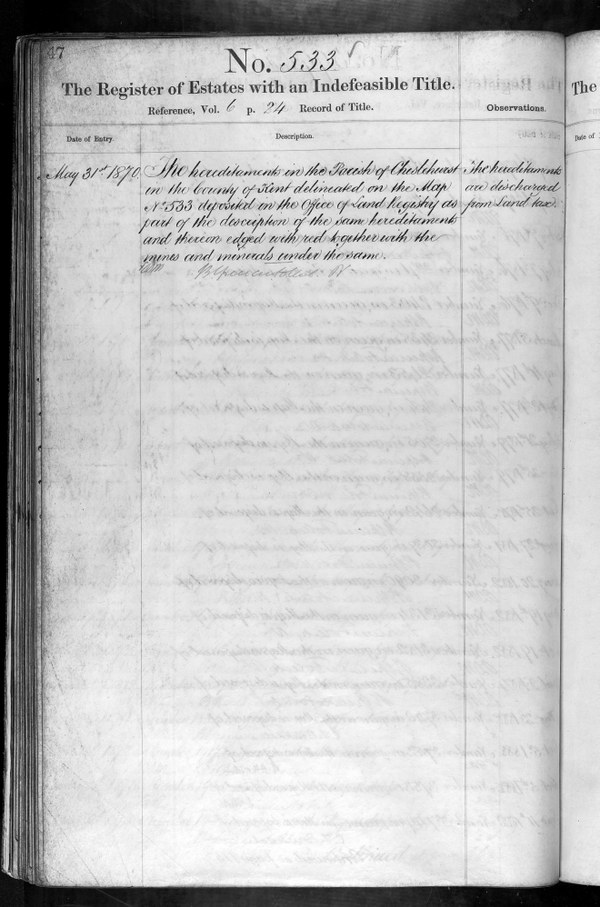 47
No. 533
The Register of Estates with an Indefeasible Title.
Reference, Vol. 6 p. 24 Record of Title.
Observations.
Date of Entry.
Description.
May 31st 1870
The hereditaments in the Parish of Chislehurst
in the County of Kent delineated on the Map
No 533 deposited in the Office of Land Registry as
part of the description of the same hereditaments
and thereon edged with red together with the
mines and minerals under the same.
The hereditaments
are discharged
from Land tax.
The
Date of